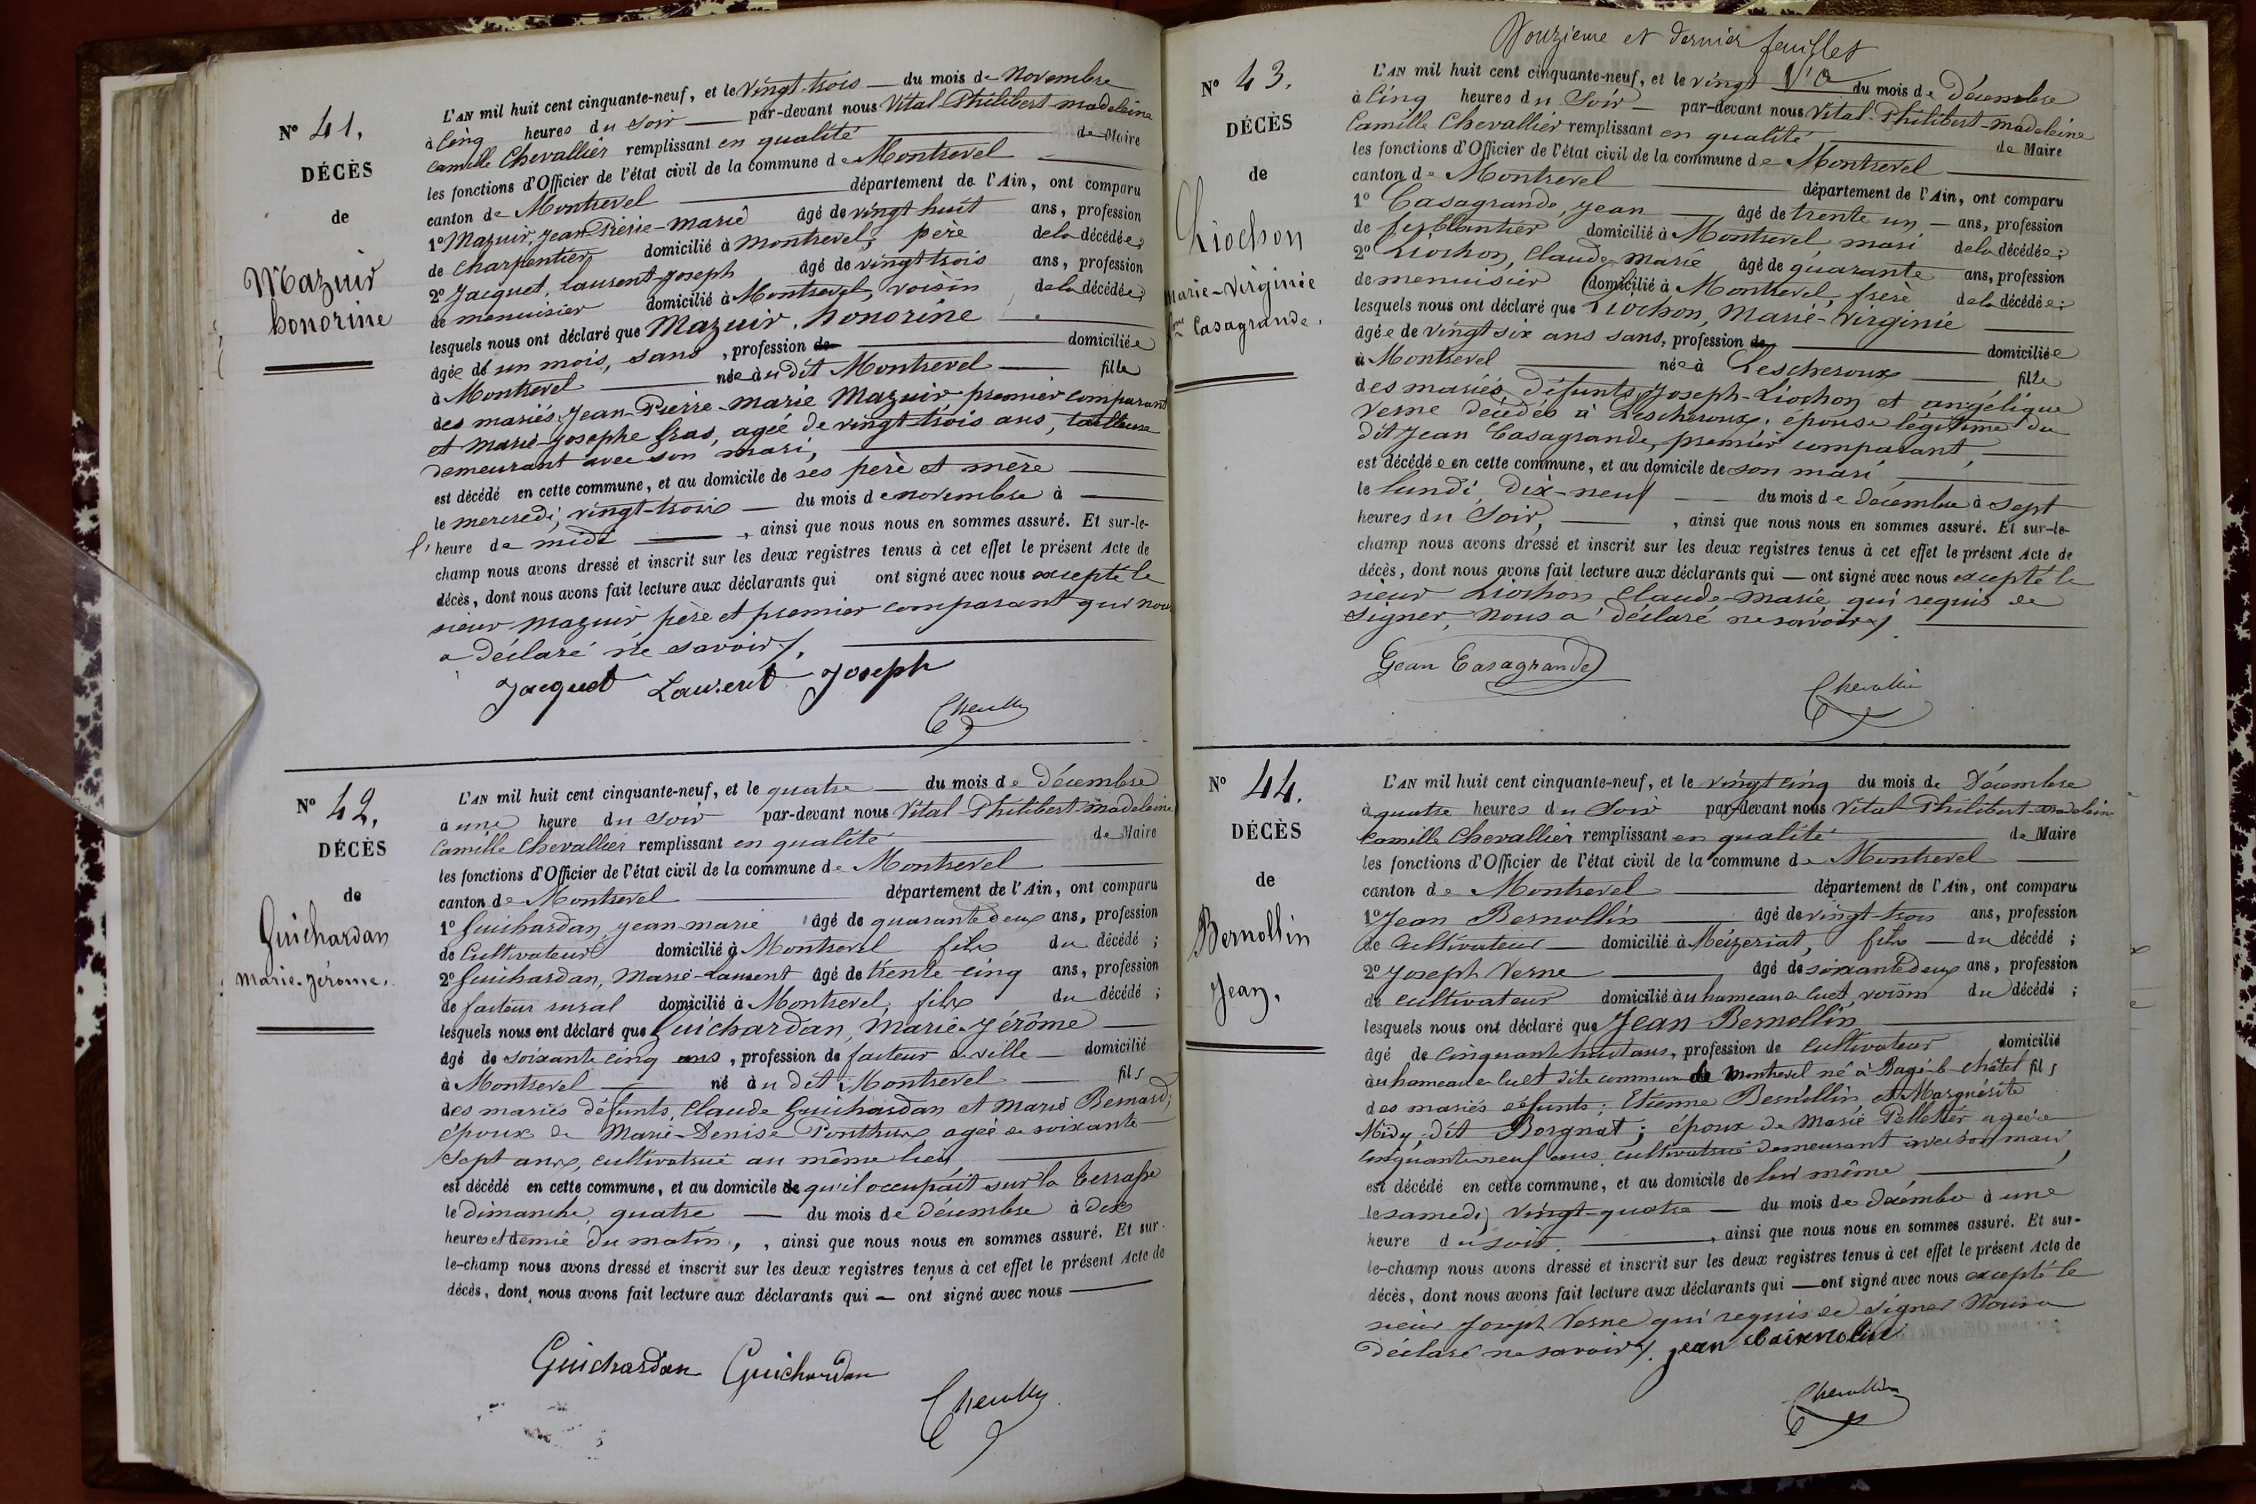 N° 41.
DÉCÈS
de
Mazuir
honorine
L'AN mil huit cent cinquante-neuf, et le vingt-trois du mois de Novembre
à Cinq heures du soir par-devant nous Vital Philibert-madeleine
Camille Chevallier remplissant en qualité de Maire
les fonctions d'Officier de l'état civil de la commune de Montrevel
canton de Montrevel département de l'Ain, ont comparu
1° Mazuir, Jean-Pierie-marie âgé de vingt huit ans, profession
de Charpentier domicilié à montrevel, père de la décédée;
2° Jacquet, Laurent Joseph âgé de vingt trois ans, profession
de menuisier domicilié à Montrevel, voisin de la décédée;
lesquels nous ont déclaré que Mazuir, honorine
âgée de un mois, sans, profession de domiciliée
à Montrevel née au dit Montrevel fille
des mariés Jean-Pierre-Marie Mazuir premier comparant
et Marie-Josephe Gras, agée de vingt trois ans, tailleuse
demeurant avec son mari,
est décédé en cette commune, et au domicile de ses père et mère
le mercredi, vingt-trois du mois de novembre à
l'heure de midi, ainsi que nous nous en sommes assuré. Et sur-le-
champ nous avons dressé et inscrit sur les deux registres tenus à cet effet le présent Acte de
décès, dont nous avons fait lecture aux déclarants qui ont signé avec nous excepté le
sieur Mazuir père et premier comparant qui nous
a déclaré ne savoir.
Jacquet Laurent Joseph
Chevallier
N° 42.
DÉCÈS
de
Guichardan
marie-Jérome.
L'AN mil huit cent cinquante-neuf, et le quatre du mois de Décembre
à une heure du soir par-devant nous Vital-Philibert madeleine
Camille Chevallier remplissant en qualité de Maire
les fonctions d'Officier de l'état civil de la commune de Montrevel
canton de Montrevel département de l'Ain, ont comparu
1° Guichardan, jean-marie âgé de quarante deux ans, profession
de Cultivateur domicilié à Montrevel fils du décédé;
2° Guichardan, Marie-Laurent âgé de trente-cinq ans, profession
de facteur rural domicilié à Montrevel, fils du décédé;
lesquels nous ont déclaré que Guichardan, Marie-Jérôme
âgé de soixante cinq ans, profession de facteur de ville domicilié
à Montrevel né au dit Montrevel fils
des mariés défunts, Claude Guichardan et Marie Bernard;
époux de Marie-Denise Ponthus agée de soixante
sept ans, cultivatrice au même lieu
est décédé en cette commune, et au domicile de qu'il occupait sur la Terrasse
le Dimanche, quatre du mois de décembre à dix
heures et demie du matin, ainsi que nous nous en sommes assuré. Et sur-
le-champ nous avons dressé et inscrit sur les deux registres tenus à cet effet le présent Acte de
décès, dont nous avons fait lecture aux déclarants qui ont signé avec nous
Guichardan Guichardan
Chevallier
Douzieme et dernier feuillet
N° 43.
DÉCÈS
de
Liochon
Marie-Virginie
fme Casagrande.
L'AN mil huit cent cinquante-neuf, et le vingt du mois de Décembre
à Cinq heures du Soir par-devant nous Vital-Philibert-madeleine
Camille Chevallier remplissant en qualité de Maire
les fonctions d'Officier de l'état civil de la commune de Montrevel
canton de Montrevel département de l'Ain, ont comparu
1° Casagrande, jean âgé de trente un ans, profession
de ferblantier domicilié à Montrevel mari de la décédée;
2° Liochon, Claude-Marie âgé de quarante ans, profession
de menuisier domicilié à Montrevel, frère de la décédée;
lesquels nous ont déclaré que Liochon, Marie-Virginie
âgée de vingt six ans sans, profession de domiciliée
à Montrevel née à Lescheroux fille
des mariés, défunts, Joseph-Liochon et angélique
Verne décédés à Lescheroux; épouse légitime du
dit Jean Casagrande, premier comparant,
est décédée en cette commune, et au domicile de son mari
le lundi, Dix-neuf du mois de décembre à sept
heures du Soir, ainsi que nous nous en sommes assuré. Et sur-le-
champ nous avons dressé et inscrit sur les deux registres tenus à cet effet le présent Acte de
décès, dont nous avons fait lecture aux déclarants qui ont signé avec nous excepté le
sieur Liochon Claude-Marie qui requis de
signer, nous a déclaré ne savoir
Jean Casagrande
Chevallier
N° 44.
DÉCÈS
de
Bernollin
Jean.
L'AN mil huit cent cinquante-neuf, et le vingt cinq du mois de Décembre
à quatre heures du Soir par-devant nous Vital-Philibert-madeleine
Camille Chevallier remplissant en qualité de Maire
les fonctions d'Officier de l'état civil de la commune de Montrevel
canton de Montrevel département de l'Ain, ont comparu
1° Jean Bernollin âgé de vingt-trois ans, profession
de Cultivateur domicilié à Méizeriat, fils du décédé;
2° Joseph Verne âgé de soixante deux ans, profession
de cultivateur domicilié au hameau de Cuet, voisin du décédé;
lesquels nous ont déclaré que Jean Bernollin
âgé de cinquante huit ans, profession de cultivateur domicilié
au hameau de Cuet dite commune de Montrevel né à Bagé-le-châtel fils
des mariés défunts; Etienne Bernollin et Marguérite
Midy, dit Borgnat; époux de Marie Pelletier agée de
cinquante-neuf ans cultivatrice demeurant avec son mari,
est décédé en cette commune, et au domicile de lui même
le samedi, vingt-quatre du mois de décembre à une
heure du soir, ainsi que nous nous en sommes assuré. Et sur-
le-champ nous avons dressé et inscrit sur les deux registres tenus à cet effet le présent Acte de
décès, dont nous avons fait lecture aux déclarants qui ont signé avec nous excepté le
sieur Joseph Verne qui requis de signer Nous a
déclaré ne savoir. jean
Chevallier